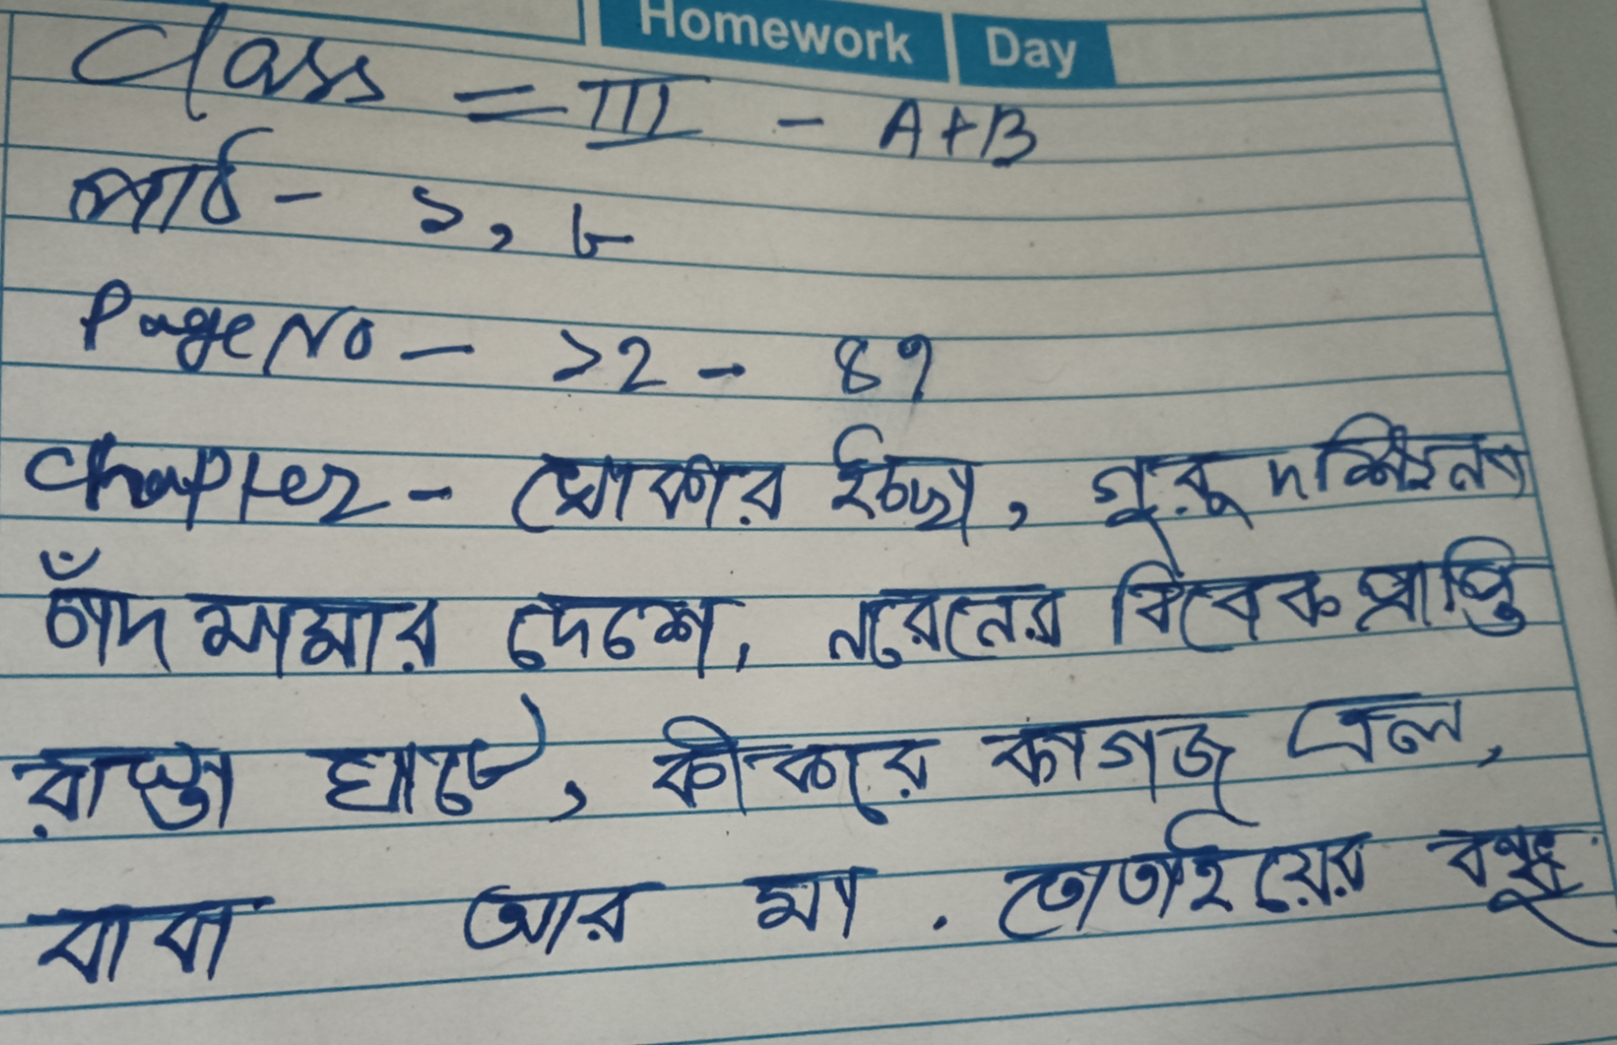 Homework Day
Class = III - A+B
পাঠ - ১, ৮
Page No - ১২ - ৪৭
Chapter - খোকার ইচ্ছা, গুরু দক্ষিণা
চাঁদ মামার দেশে, নরেনের বিবেক প্রাপ্তি
রাস্তা ঘাটে, কী করে কাগজ এল,
বাবা আর মা . তোতাইয়ের বন্ধু